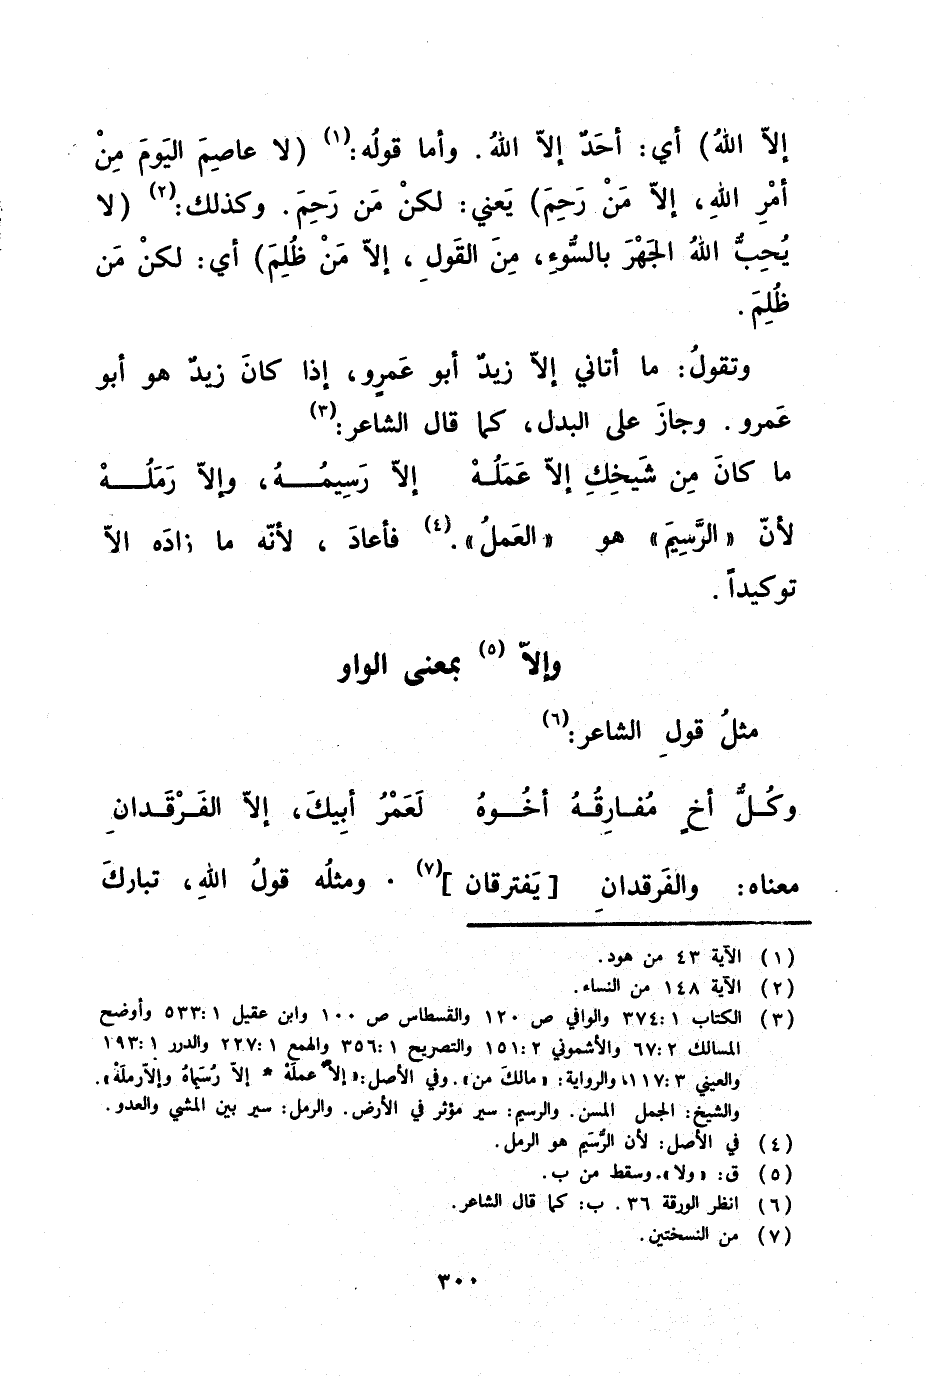 إلاّ اللهُ) أي: أحَدٌ إلاّ اللهُ. وأما قولُه:(١) (لا عاصِمَ اليَومَ مِنْ
أمْرِ اللهِ، إلاّ مَنْ رَحِمَ) يَعني: لكنْ مَن رَحِمَ. وكذلك:(٢) (لا
يُحِبُّ اللهُ الجَهْرَ بالسُّوءِ، مِنَ القَولِ، إلاّ مَنْ ظُلِمَ) أي: لكنْ مَن
ظُلِمَ.
وتقولُ: ما أتاني إلاّ زيدٌ أبو عَمرٍو، إذا كانَ زيدٌ هو أبو
عَمرو. وجازَ على البدل، كما قال الشاعر:(٣)
ما كانَ مِن شَيخِكِ إلاّ عَمَلُهْ إلاّ رَسِيمُـــهُ، وإلاّ رَمَلُـــهْ
لأنّ «الرَّسِيمَ» هو «العَملُ».(٤) فأعادَ، لأنّه ما زادَه الاّ
توكيداً.
وإلاّ (٥) بمعنى الواو
مثلُ قولِ الشاعر:(٦)
وكُـلُّ أخٍ مُفـارِقُـهُ أخُـوهُ لَعَمْرُ أبِيكَ، إلاّ الفَـرْقَـدانِ
معناه: والفَرقدانِ [يَفترقان](٧). ومثلُه قولُ اللهِ، تباركَ
(١) الآية ٤٣ من هود.
(٢) الآية ١٤٨ من النساء.
(٣) الكتاب ١:٣٧٤ والوافي ص ١٢٠ والقسطاس ص ١٠٠ وابن عقيل ١:٥٣٣ وأوضح
المسالك ٢:٦٧ والأشموني ٢:١٥١ والتصريح ١:٣٥٦ والهمع ١:٢٢٧ والدرر ١:١٩٣
والعيني ٣:١١٧، والرواية: «مالكَ من». وفي الأصل: «إلاّ عملَهْ * إلاّ رُسَيماهُ وإلاّرملَهْ».
والشيخ: الجمل المسن. والرسيم: سير مؤثر في الأرض. والرمل: سير بين المشي والعدو.
(٤) في الأصل: لأن الرُّسَيم هو الرمل.
(٥) ق: «ولا». وسقط من ب.
(٦) انظر الورقة ٣٦. ب: كما قال الشاعر.
(٧) من النسختين.
٣٠٠